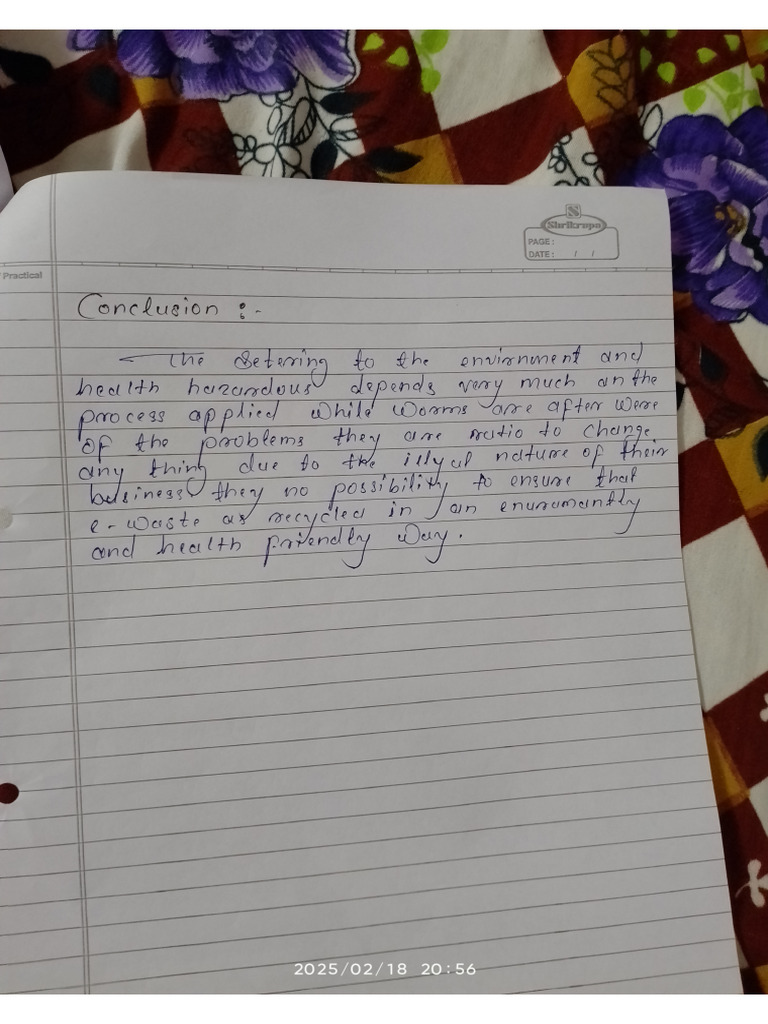 S
Shrikrupa
PAGE :
DATE : / /
Practical
Conclusion :-
The Setering to the envirnment and
health hazardous depends very much on the
process applied while worms are after were
of the problems they are ratio to change
any thing due to the illyal nature of their
business they no possibility to ensure that
e-waste as recycled in an enuromantly
and health friendly way.
2025/02/18 20:56